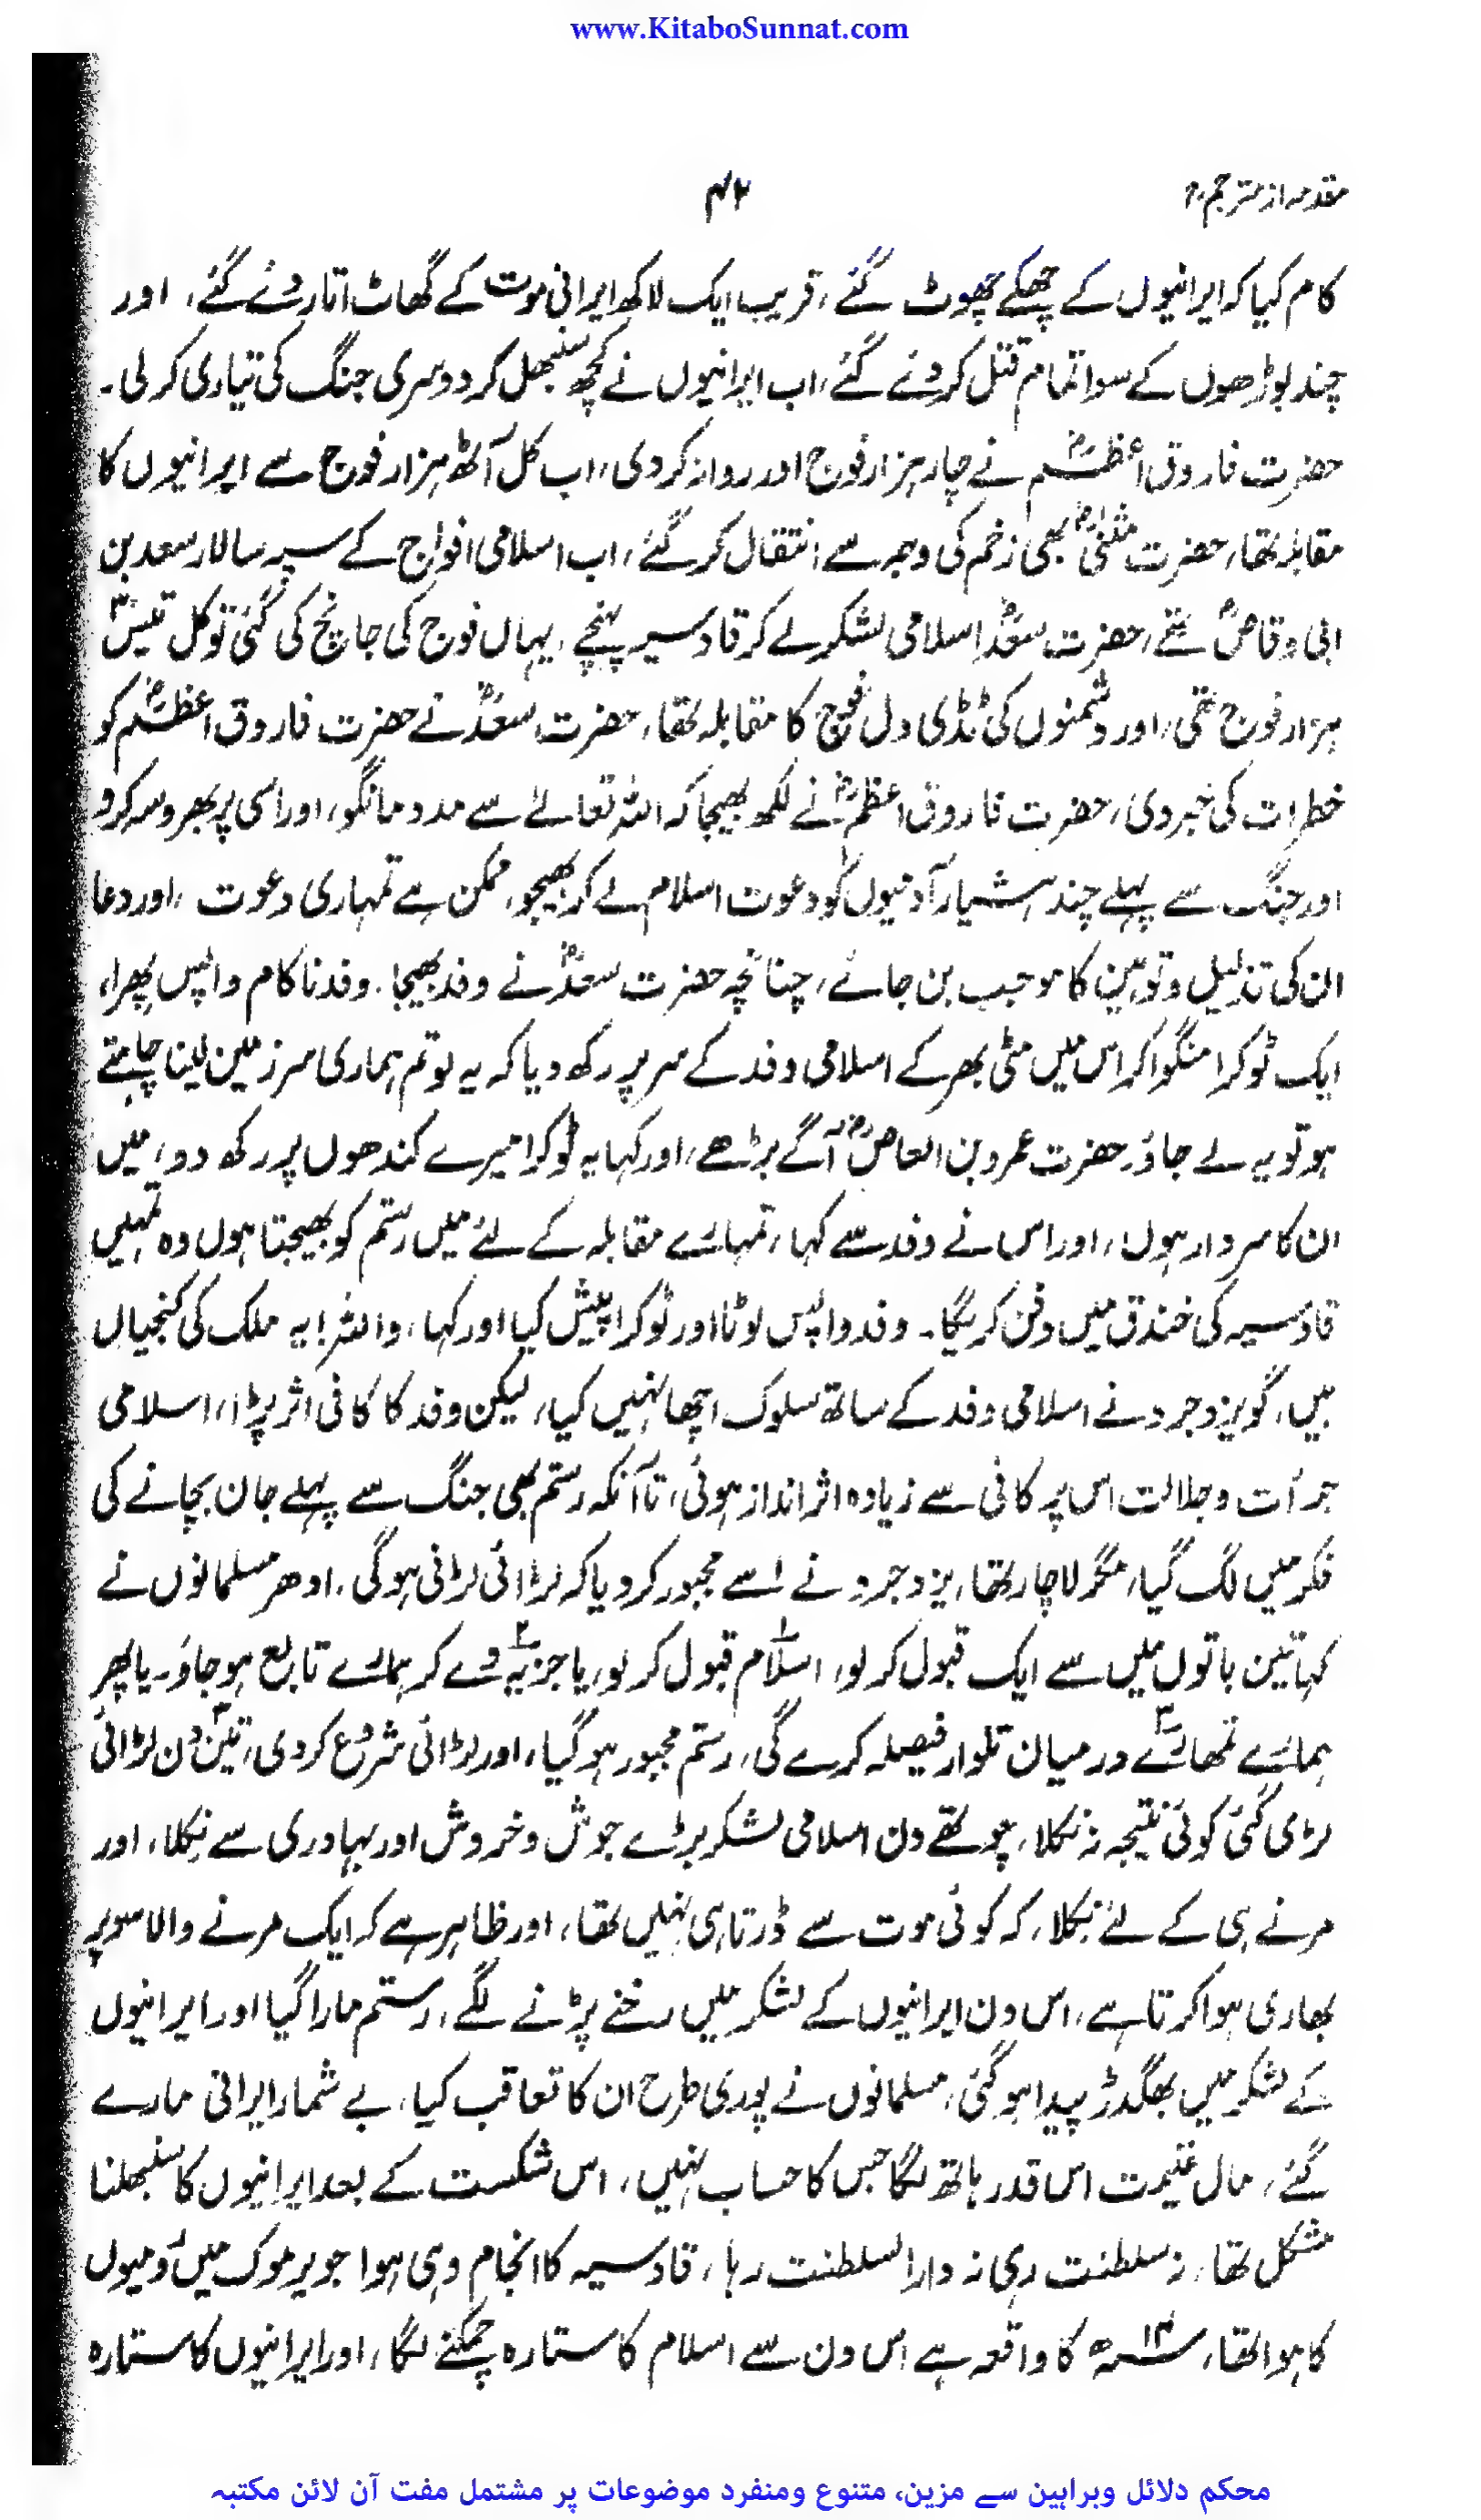 www.KitaboSunnat.com
مقدمہ از مترجم
۴۲
کام کیا کہ ایرانیوں کے چھکے چھوٹ گئے، قریب ایک لاکھ ایرانی موت کے گھاٹ اتار دئے گئے، اور
چند بوڑھوں کے سوا تمام قتل کر دئے گئے، اب ایرانیوں نے کچھ سنبھل کر دوسری جنگ کی تیاری کر لی۔
حضرت فاروق اعظمؓ نے چار ہزار فوج اور روانہ کر دی، اب کل آٹھ ہزار فوج سے ایرانیوں کا
مقابلہ تھا، حضرت مثنیٰؓ بھی زخم کی وجہ سے انتقال کر گئے، اب اسلامی افواج کے سپہ سالار سعد بن
ابی وقاصؓ تھے، حضرت سعدؓ اسلامی لشکر لے کر قادسیہ پہنچے، یہاں فوج کی جانچ کی گئی تو کل تیس
ہزار فوج تھی، اور دشمنوں کی ٹڈی دل فوج کا مقابلہ تھا، حضرت سعدؓ نے حضرت فاروق اعظمؓ کو
خطرات کی خبر دی، حضرت فاروق اعظمؓ نے لکھ بھیجا کہ اللہ تعالےٰ سے مدد مانگو، اور اسی پر بھروسہ کرو
اور جنگ سے پہلے چند ہشیار آدمیوں کو دعوت اسلام لے کر بھیجو، ممکن ہے تمہاری دعوت، اور دعا
ان کی تذلیل و توہین کا موجب بن جائے، چنانچہ حضرت سعدؓ نے وفد بھیجا۔ وفد ناکام واپس پھرا،
ایک ٹوکرا منگوا کر اس میں مٹی بھر کے اسلامی وفد کے سر پر رکھ دیا کہ یہ لو تم ہماری سرزمین لینا چاہتے
ہو تو یہ لے جاؤ، حضرت عمرو بن العاصؓ آگے بڑھے، اور کہا یہ ٹوکرا میرے کندھوں پر رکھ دو، میں
ان کا سردار ہوں، اور اس نے وفد سے کہا، تمہارے مقابلہ کے لئے میں رستم کو بھیجتا ہوں وہ تمہیں
قادسیہ کی خندق میں دفن کریگا۔ وفد واپس لوٹا اور ٹوکرا پیش کیا اور کہا، واللہ! یہ ملک کی کنجیاں
ہیں، گو یزدجرد نے اسلامی وفد کے ساتھ سلوک اچھا نہیں کیا، لیکن وفد کا کافی اثر پڑا، اسلامی
جرأت و جلالت اس پر کافی سے زیادہ اثر انداز ہوئی، تاآنکہ رستم بھی جنگ سے پہلے جان بچانے کی
فکر میں لگ گیا، مگر لاچار تھا، یزدجرد نے اسے مجبور کر دیا کہ لڑائی لڑنی ہوگی، ادھر مسلمانوں نے
کہا تین باتوں میں سے ایک قبول کر لو، اسلام قبول کر لو، یا جزیہ دے کر ہمارے تابع ہو جاؤ۔ یا پھر
ہمارے تمھارے درمیان تلوار فیصلہ کرے گی، رستم مجبور ہو گیا، اور لڑائی شروع کر دی، تین دن لڑائی
لڑی گئی کوئی نتیجہ نہ نکلا، چوتھے دن اسلامی لشکر بڑے جوش و خروش اور بہادری سے نکلا، اور
مرنے ہی کے لئے نکلا، کہ کوئی موت سے ڈرتا ہی نہیں تھا، اور ظاہر ہے کہ ایک مرنے والا سو پر
بھاری ہوا کرتا ہے، اس دن ایرانیوں کے لشکر میں رخنے پڑنے لگے، رستم مارا گیا اور ایرانیوں
کے لشکر میں بھگدڑ پیدا ہو گئی، مسلمانوں نے پوری طرح ان کا تعاقب کیا، بے شمار ایرانی مارے
گئے، مال غنیمت اس قدر ہاتھ لگا جس کا حساب نہیں، اس شکست کے بعد ایرانیوں کا سنبھلنا
مشکل تھا، نہ سلطنت رہی نہ دارالسلطنت رہا، قادسیہ کا انجام وہی ہوا جو یرموک میں رومیوں
کا ہوا تھا، ۱۴ھ کا واقعہ ہے اس دن سے اسلام کا ستارہ چمکنے لگا، اور ایرانیوں کا ستارہ
محکم دلائل وبراہین سے مزین، متنوع ومنفرد موضوعات پر مشتمل مفت آن لائن مکتبہ